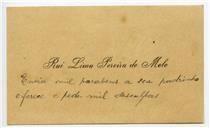 Rui Lima Pereira de Melo
Envia mil parabens a seu padrinho
e pede mil desculpas